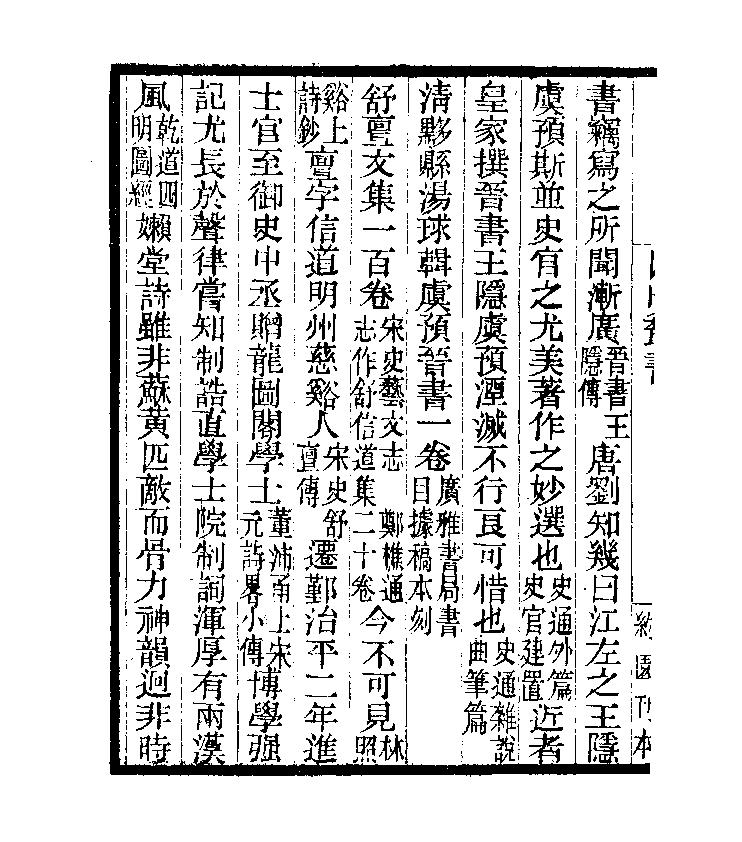 約園刊本
書竊寫之所聞漸廣晉書王隱傳唐劉知幾曰江左之王隱
虞預斯並史官之尤美著作之妙選也史通外篇史官建置近者
皇家撰晉書王隱虞預湮滅不行良可惜也史通雜說曲筆篇
清黟縣湯球輯虞預晉書一卷廣雅書局書目據稿本刻
舒亶文集一百卷宋史藝文志 鄭樵通志作舒信道集二十卷今不可見林照
谿上詩鈔亶字信道明州慈谿人宋史舒亶傳遷鄞治平二年進
士官至御史中丞贈龍圖閣學士董沛甬上宋元詩畧小傳博學强
記尤長於聲律嘗知制誥直學士院制詞渾厚有兩漢
風乾道四明圖經嬾堂詩雖非蘇黃匹敵而骨力神韻迥非時